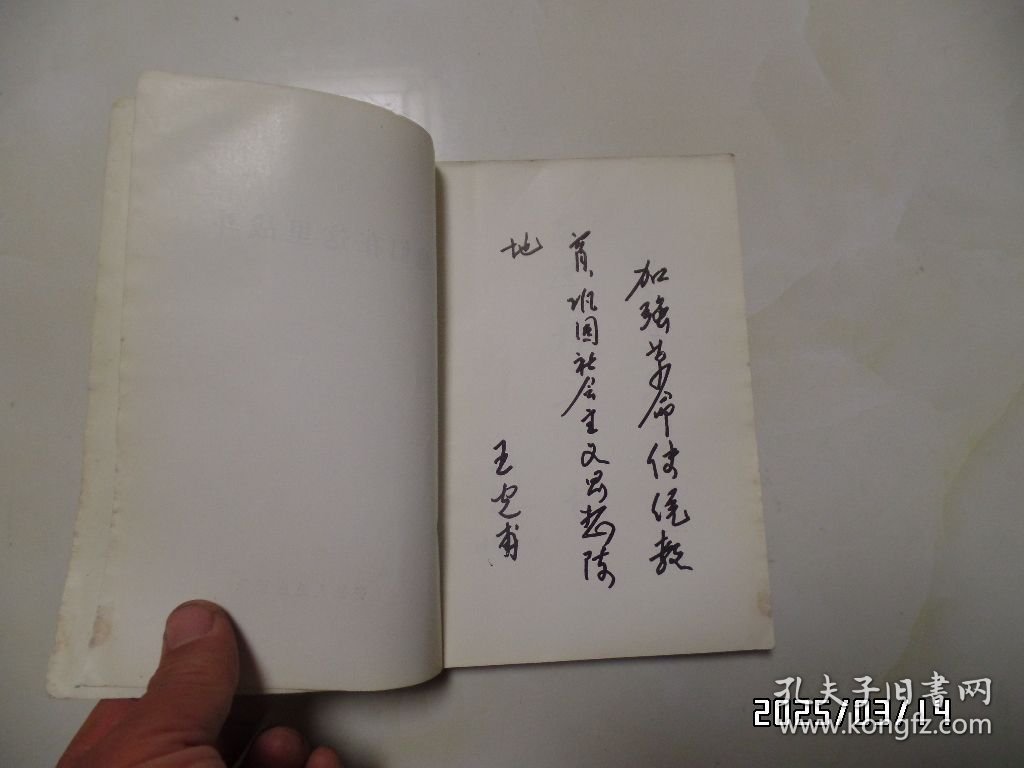 加强革命传统教
育巩固社会主义思想阵
地
王定甫
在这里战斗
孔夫子旧書网
www.kongfz.com
2025/03/14